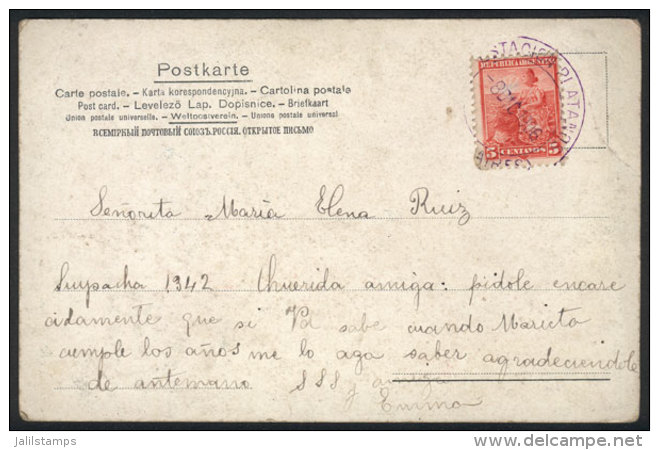 Postkarte
Carte postale. – Karta korespondencyjna. – Cartolina postale
Post card. – Levelező Lap. Dopisnice. – Briefkaart
Union postale universelle. – Weltpostverein. – Unione postale universal
ВСЕМІРНЫЙ ПОЧТОВЫЙ СОЮЗЪ. РОССІЯ. ОТКРЫТОЕ ПИСЬМО
REPUBLICA ARGENTINA
5 CENTAVOS 5
Señorita María Elena Ruiz
Suipacha 1342 Querida amiga: pidole encare
cidamente que si Vd sabe cuando Marieta
cumple los años me lo aga saber agradeciendole
de antemano SSS amiga
y Emma
jalilstamps
http://www.delcampe.net